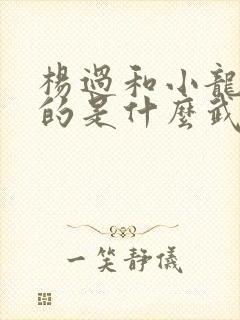 楊過和小龍
的是什麼武
一笑靜儀